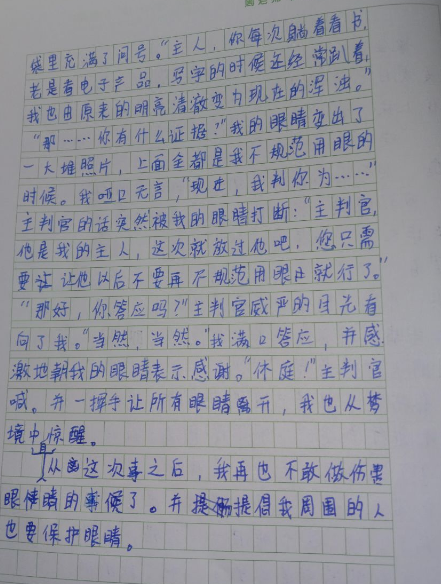 袋里充满了问号。“主人，你每次躺着看书，
老是看电子产品，写字的时候还经常趴着，
我也由原来的明亮清澈变为现在的浑浊。”
“那……你有什么证据？”我的眼睛变出了
一大堆照片，上面全都是我不规范用眼的
时候。我哑口无言，“现在，我判你为……”
主判官的话突然被我的眼睛打断：“主判官，
他是我的主人，这次就放过他吧，您只需
要让他以后不要再不规范用眼就行了。”
“那好，你答应吗？”主判官威严的目光看
向了我。“当然，当然。”我满口答应，并感
激地朝我的眼睛表示感谢。“休庭！”主判官
喊。并一挥手让所有眼睛离开，我也从梦
境中惊醒。
从这次事之后，我再也不敢做伤害
眼睛的事了。并提倡我周围的人
也要保护眼睛。